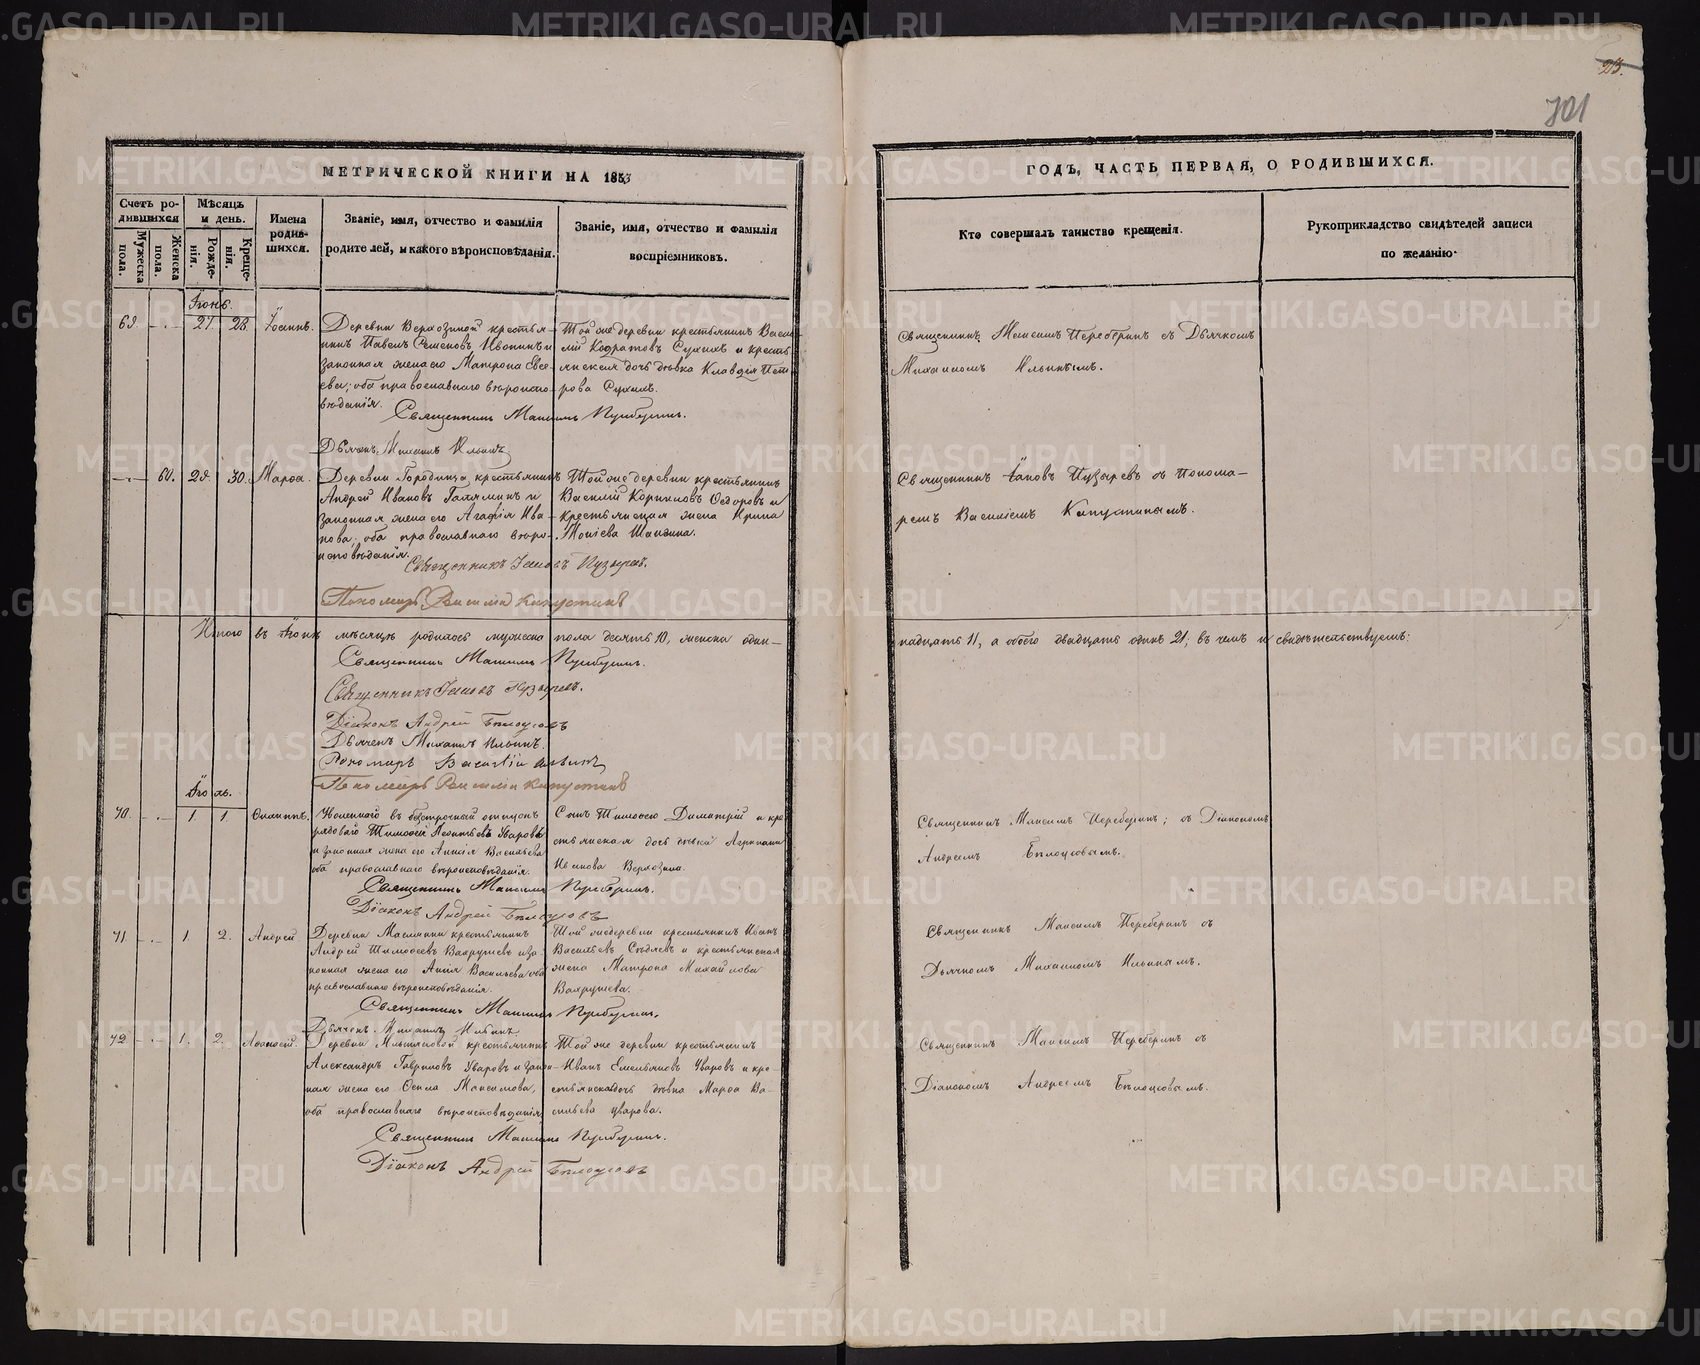 23.
701
МЕТРИЧЕСКОЙ КНИГИ НА 1853
ГОДЪ, ЧАСТЬ ПЕРВАЯ, О РОДИВШИХСЯ.
Счетъ родившихся
Мужеска пола.
Женска пола.
Мѣсяцъ и день.
Рожденія.
Крещенія.
Имена родившихся.
Званіе, имя, отчество и фамилія
родителей, и какого вѣроисповѣданія.
Званіе, имя, отчество и фамилія
воспріемниковъ.
Кто совершалъ таинство крещенія.
Рукоприкладство свидѣтелей записи
по желанію.
Іюнь.
69. 27. 28. Іоаннъ.
Деревни крестья-
нинъ Павелъ и
законная жена его Матрона Евсе-
ева, оба православнаго вѣроиспо-
вѣданія.
Той же деревни крестьянинъ Васи-
лій Сухихъ и кресть-
янская дочь дѣвка Клавдія Пет-
рова Сухихъ.
Священникъ Максимъ
Дьячекъ Михаилъ Ильинъ
Священникъ Максимъ съ Дьячкомъ
Михаиломъ Ильинымъ.
60. 29. 30. Марѳа.
Деревни крестьянинъ
Андрей Ивановъ и
законная жена его Агафія Ива-
нова, оба православнаго вѣро-
исповѣданія.
Той же деревни крестьянинъ
Василій Ѳедоровъ и
крестьянская жена Ирина
Священникъ Іаковъ Пузыревъ.
Пономарь Василій Капустинъ
Священникъ Іаковъ Пузыревъ съ Понома-
ремъ Василіемъ Капустинымъ.
Итого въ Іюнѣ мѣсяцѣ родилось мужеска пола десять 10, женска один-
надцать 11, а обоего двадцать одинъ 21; въ чемъ и свидѣтельствуемъ:
Священникъ Максимъ
Священникъ Іаковъ Пузыревъ.
Діаконъ Андрей Бѣлоусовъ
Дьячекъ Михаилъ Ильинъ.
Пономарь Василій
Пономарь Василій Капустинъ
Іюль.
70. 1. 1.
Уволеннаго въ безсрочный отпускъ
рядоваго Тимоѳея Леонтьева Уварова
и законная жена его Анисія Васильева
оба православнаго вѣроисповѣданія.
Сынъ Тимоѳею Димитрій и кре-
стьянская дочь дѣвка Агрипина
Иванова
Священникъ Максимъ
Діаконъ Андрей Бѣлоусовъ
Священникъ Максимъ съ Діакономъ
Андреемъ Бѣлоусовымъ.
71. 1. 2. Андрей
Деревни крестьянинъ
Андрей Тимоѳеевъ Вахрушевъ и за-
конная жена его Анна Васильева оба
православнаго вѣроисповѣданія.
Той же деревни крестьянинъ Иванъ
Васильевъ и крестьянская
жена Матрона Михайлова
Вахрушева.
Священникъ Максимъ
Дьячекъ Михаилъ Ильинъ
Священникъ Максимъ съ
Дьячкомъ Михаиломъ Ильинымъ.
72. 1. 2. Аѳанасій.
Деревни крестьянинъ
Александръ Гавриловъ Уваровъ и закон-
ная жена его Максимова,
оба православнаго вѣроисповѣданія
Той же деревни крестьянинъ
Иванъ Емельяновъ Уваровъ и кре-
стьянская дочь дѣвка Марѳа Ва-
сильева Уварова.
Священникъ Максимъ
Діаконъ Андрей Бѣлоусовъ
Священникъ Максимъ съ
Діакономъ Андреемъ Бѣлоусовымъ.
METRIKI.GASO-URAL.RU